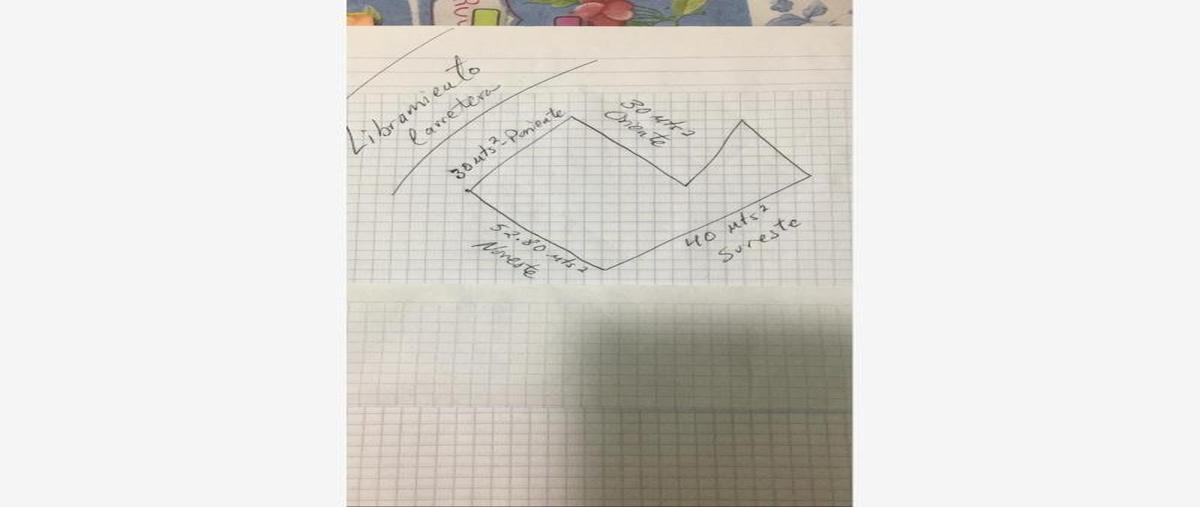 Libramiento
Carretera
30 mts² - Poniente
30 mts²
Oriente
52.80 mts²
Noreste
40 mts²
Sureste